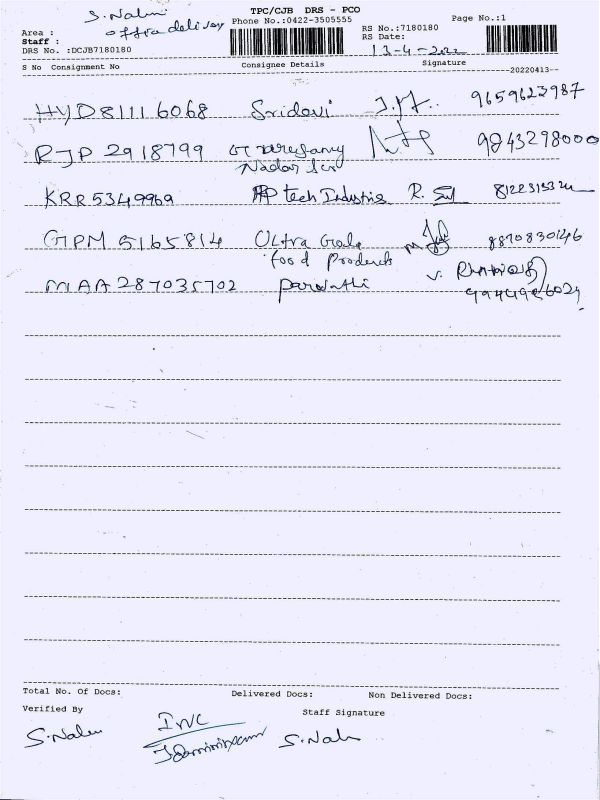 S. Nalini
offra delivery
TPC/CJB DRS - PCO
Phone No.:0422-3505555
Page No.:1
Area :
Staff :
DRS No. :DCJB7180180
RS No.:7180180
RS Date:
13-4-2022
S No Consignment No Consignee Details Signature
20220413
HYD81116068 Sridevi 9659623987
RJP 2918799 9843298000
Nadar
KRR5349969 PP tech Industries R.
GPM 5165814 Ultra Gala 8870830146
food Products
MAA 287035702 parvathi V.
Total No. Of Docs: Delivered Docs: Non Delivered Docs:
Verified By Staff Signature
S. Nalini INC S. Nalini